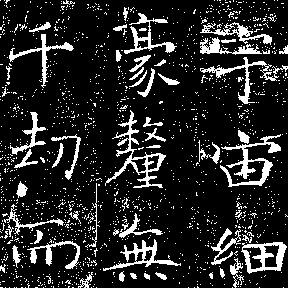 宇宙細
豪釐無
千劫而